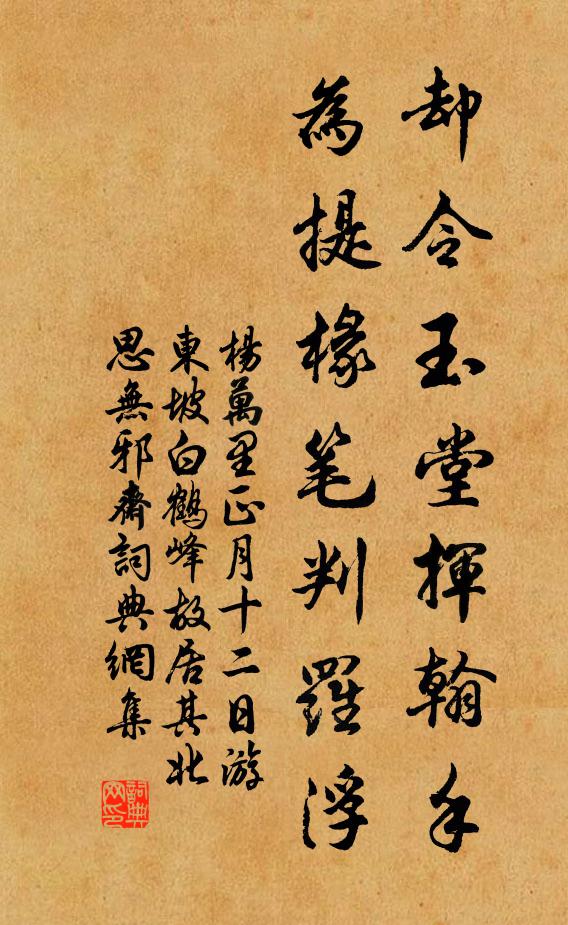 却令玉堂揮翰手
為提椽笔判羅浮
楊萬里正月十二日游
東坡白鶴峰故居其北
思無邪齋詞典網集
詞典
网印